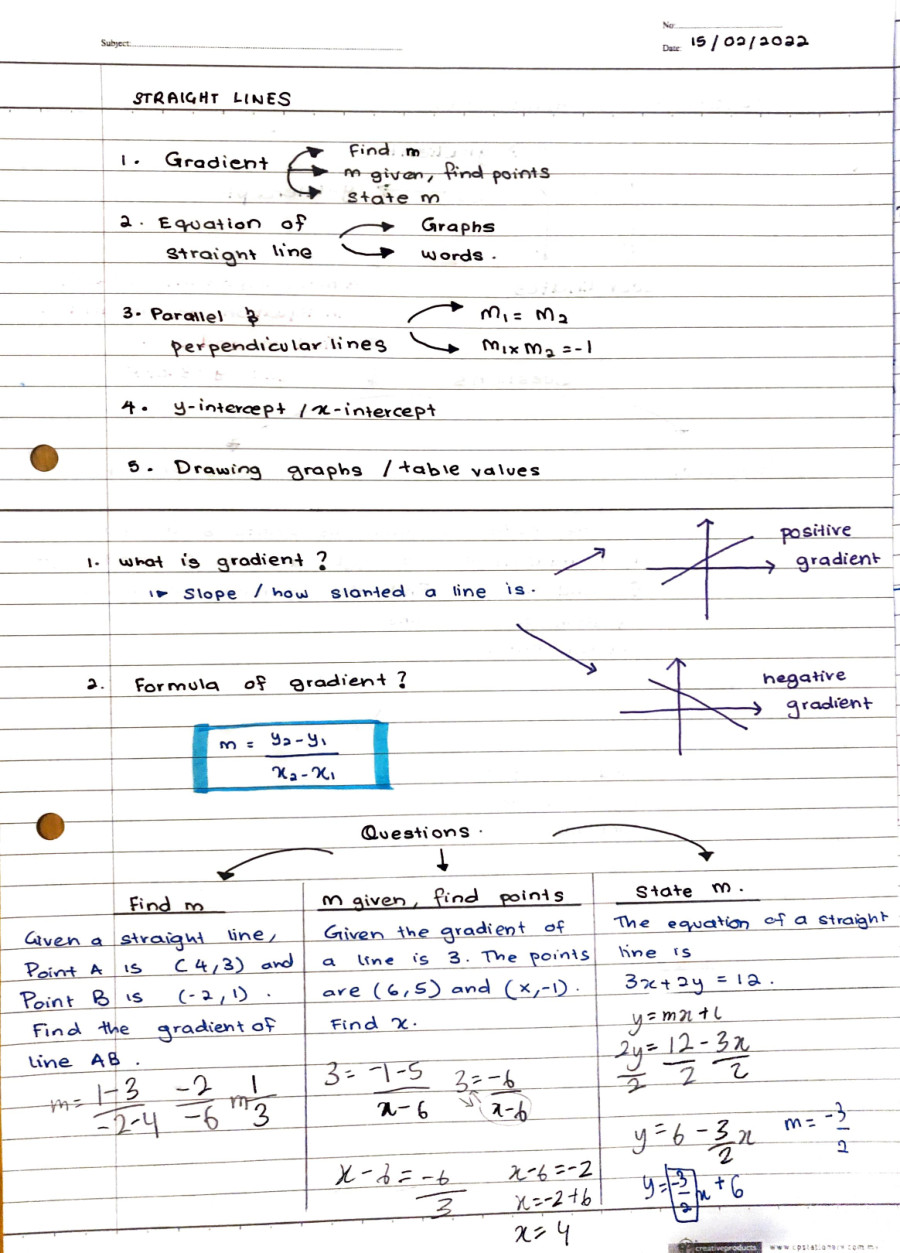 No:
Subject:
Date: 15/02/2022
STRAIGHT LINES
1. Gradient
Find m
m given, find points
state m
2. Equation of
straight line
Graphs
words.
3. Parallel &
perpendicular lines
m₁ = m₂
m₁ x m₂ = -1
4. y-intercept / x-intercept
5. Drawing graphs / table values
1. what is gradient?
slope / how slanted a line is.
positive
gradient
negative
gradient
2. Formula of gradient?
m = y₂-y₁ / x₂-x₁
Questions.
Find m
Given a straight line,
Point A is (4,3) and
Point B is (-2,1).
Find the gradient of
line AB.
m = 1-3 / -2-4  -2/-6  m 1/3
m given, find points
Given the gradient of
a line is 3. The points
are (6,5) and (x,-1).
Find x.
3 = -1-5 / x-6  3 = -6 / x-6
x-6 = -6/3  x-6=-2
x=-2+6
x=4
State m.
The equation of a straight
line is
3x+2y = 12.
y=mx+c
2y/2 = 12/2 - 3x/2
y=6-3/2x  m=-3/2
y=-3/2x+6
creativeproducts